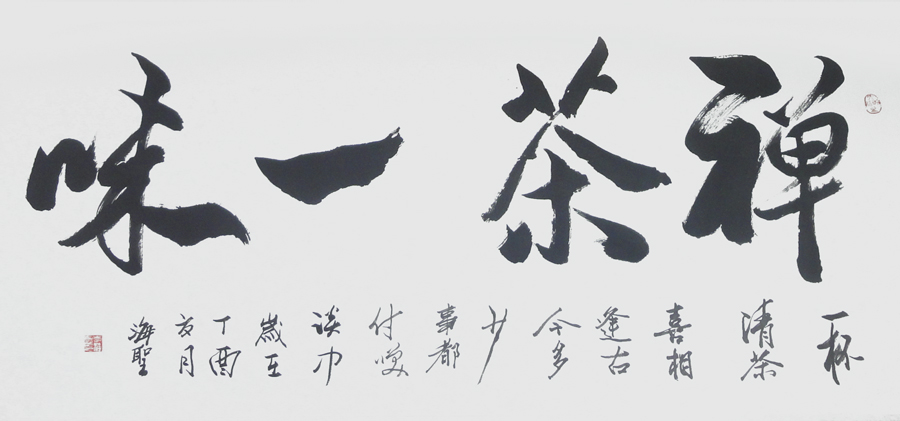 禅茶一味
一杯
清茶
喜相
逢古
今多
少
事都
付咲
谈中
歲在
丁酉
月
海聖